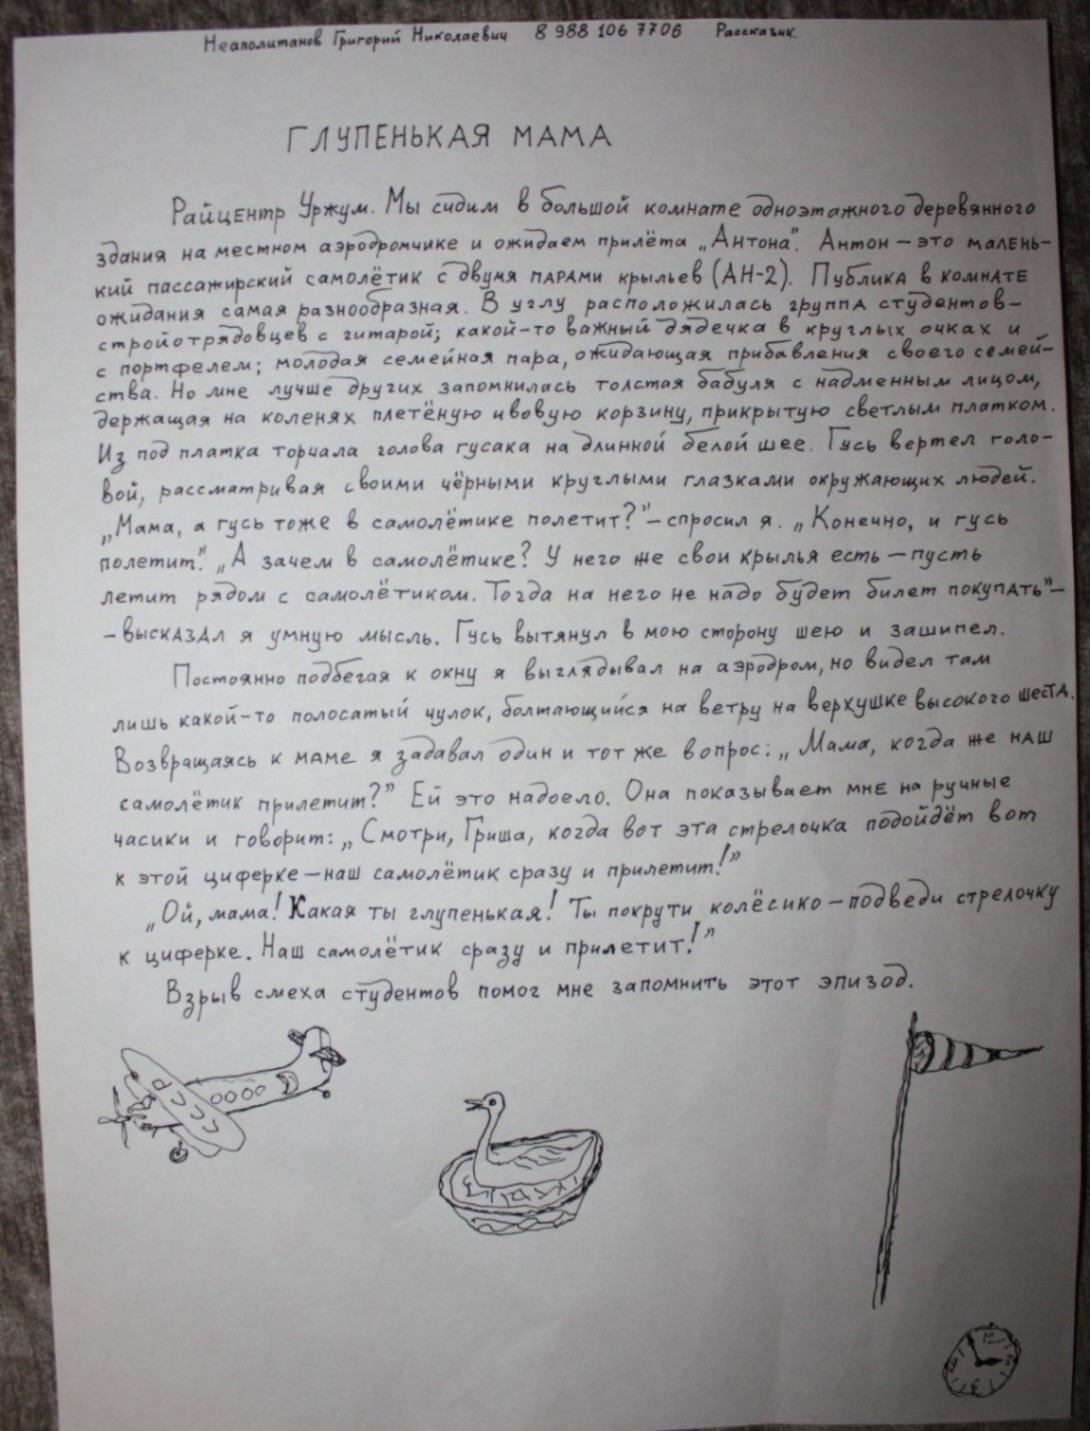 Неаполитанов Григорий Николаевич 8 988 106 7706 Рассказик.
ГЛУПЕНЬКАЯ МАМА
Райцентр Уржум. Мы сидим в большой комнате одноэтажного деревянного
здания на местном аэродромчике и ожидаем прилёта „Антона”. Антон – это малень-
кий пассажирский самолётик с двумя парами крыльев (АН-2). Публика в комнате
ожидания самая разнообразная. В углу расположилась группа студентов-
стройотрядовцев с гитарой; какой-то важный дядечка в круглых очках и
с портфелем; молодая семейная пара, ожидающая прибавления своего семей-
ства. Но мне лучше других запомнилась толстая бабуля с надменным лицом,
держащая на коленях плетёную ивовую корзину, прикрытую светлым платком.
Из под платка торчала голова гусака на длинной белой шее. Гусь вертел голо-
вой, рассматривая своими чёрными круглыми глазками окружающих людей.
„Мама, а гусь тоже в самолётике полетит?” – спросил я. „Конечно, и гусь
полетит”. „А зачем в самолётике? У него же свои крылья есть – пусть
летит рядом с самолётиком. Тогда на него не надо будет билет покупать” –
– высказал я умную мысль. Гусь вытянул в мою сторону шею и зашипел.
Постоянно подбегая к окну я выглядывал на аэродром, но видел там
лишь какой-то полосатый чулок, болтающийся на ветру на верхушке высокого шеста.
Возвращаясь к маме я задавал один и тот же вопрос: „Мама, когда же наш
самолётик прилетит?” Ей это надоело. Она показывает мне на ручные
часики и говорит: „Смотри, Гриша, когда вот эта стрелочка подойдёт вот
к этой циферке – наш самолётик сразу и прилетит!”
„Ой, мама! Какая ты глупенькая! Ты покрути колёсико – подведи стрелочку
к циферке. Наш самолётик сразу и прилетит!”
Взрыв смеха студентов помог мне запомнить этот эпизод.
12
3